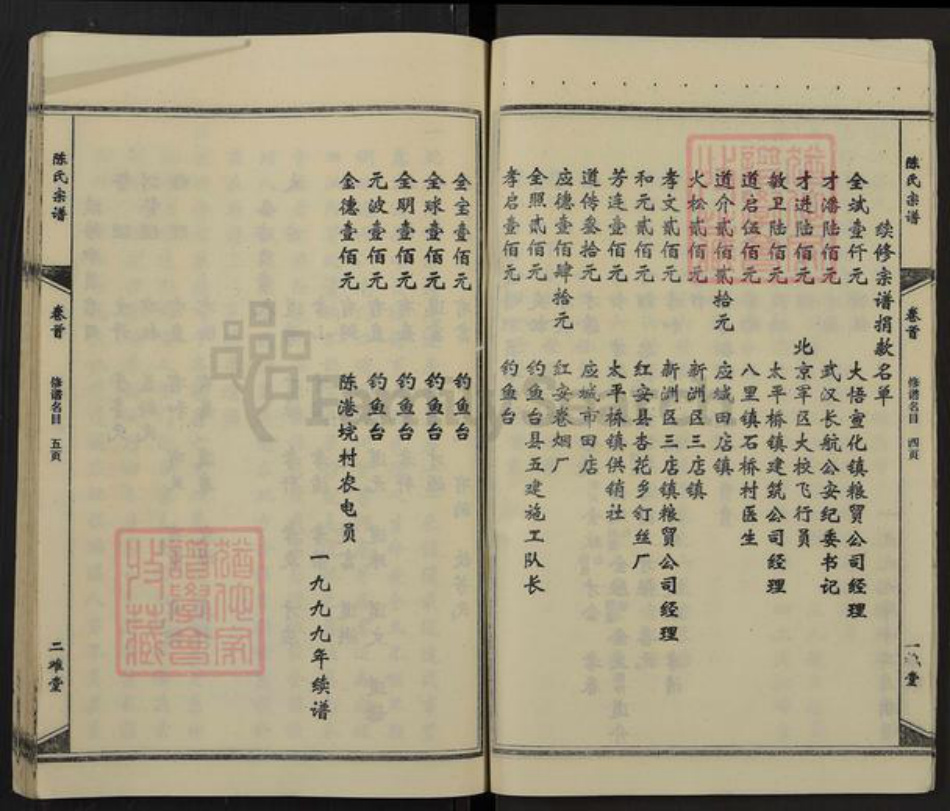 陈氏宗谱
卷首
修谱名目 四页
堂
续修宗谱捐款名单
全斌壹仟元 大悟宣化镇粮贸公司经理
才潘陆佰元 武汉长航公安纪委书记
才进陆佰元 北京军区大校飞行员
敏卫陆佰元 太平桥镇建筑公司经理
道启伍佰元 八里镇石桥村医生
道介贰佰贰拾元 应城田店镇
火松贰佰元 新洲区三店镇
孝文贰佰元 新洲区三店镇粮贸公司经理
和元贰佰元 红安县杏花乡钉丝厂
芳连壹佰元 太平桥镇供销社
道传叁拾元 应城市田店
应德壹佰肆拾元 红安卷烟厂
全照贰佰元 钓鱼台县五建施工队长
孝启壹佰元 钓鱼台
全宝壹佰元 钓鱼台
全球壹佰元 钓鱼台
全明壹佰元 钓鱼台
元波壹佰元 钓鱼台
金德壹佰元 陈港垸村农电员
一九九九年续谱
陈氏宗谱
卷首
修谱名目 五页
二难堂